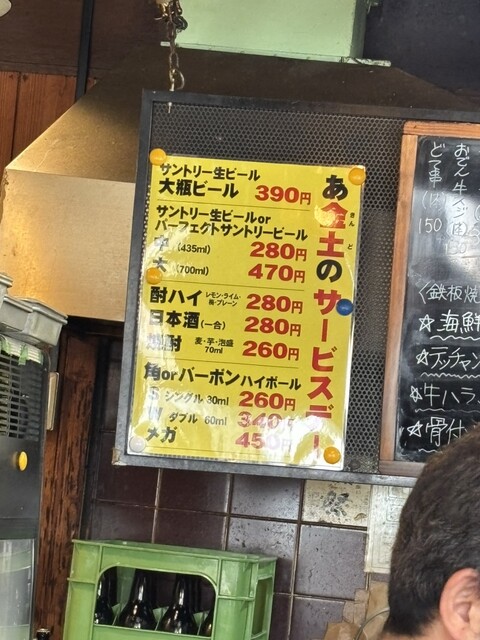 あ金土のサービスデー
きん ど
サントリー生ビール
大瓶ビール 390円
サントリー生ビールor
パーフェクトサントリービール
中 (435ml) 280円
大 (700ml) 470円
酎ハイ レモン・ライム・梅・プレーン 280円
日本酒(一合) 280円
焼酎 麦・芋・泡盛 70ml 260円
角orバーボンハイボール
S シングル 30ml 260円
W ダブル 60ml 340円
メガ 450円
おでん
どて串
150
〈鉄板焼
☆海鮮
☆テッチャン
☆牛ハラ
☆骨付